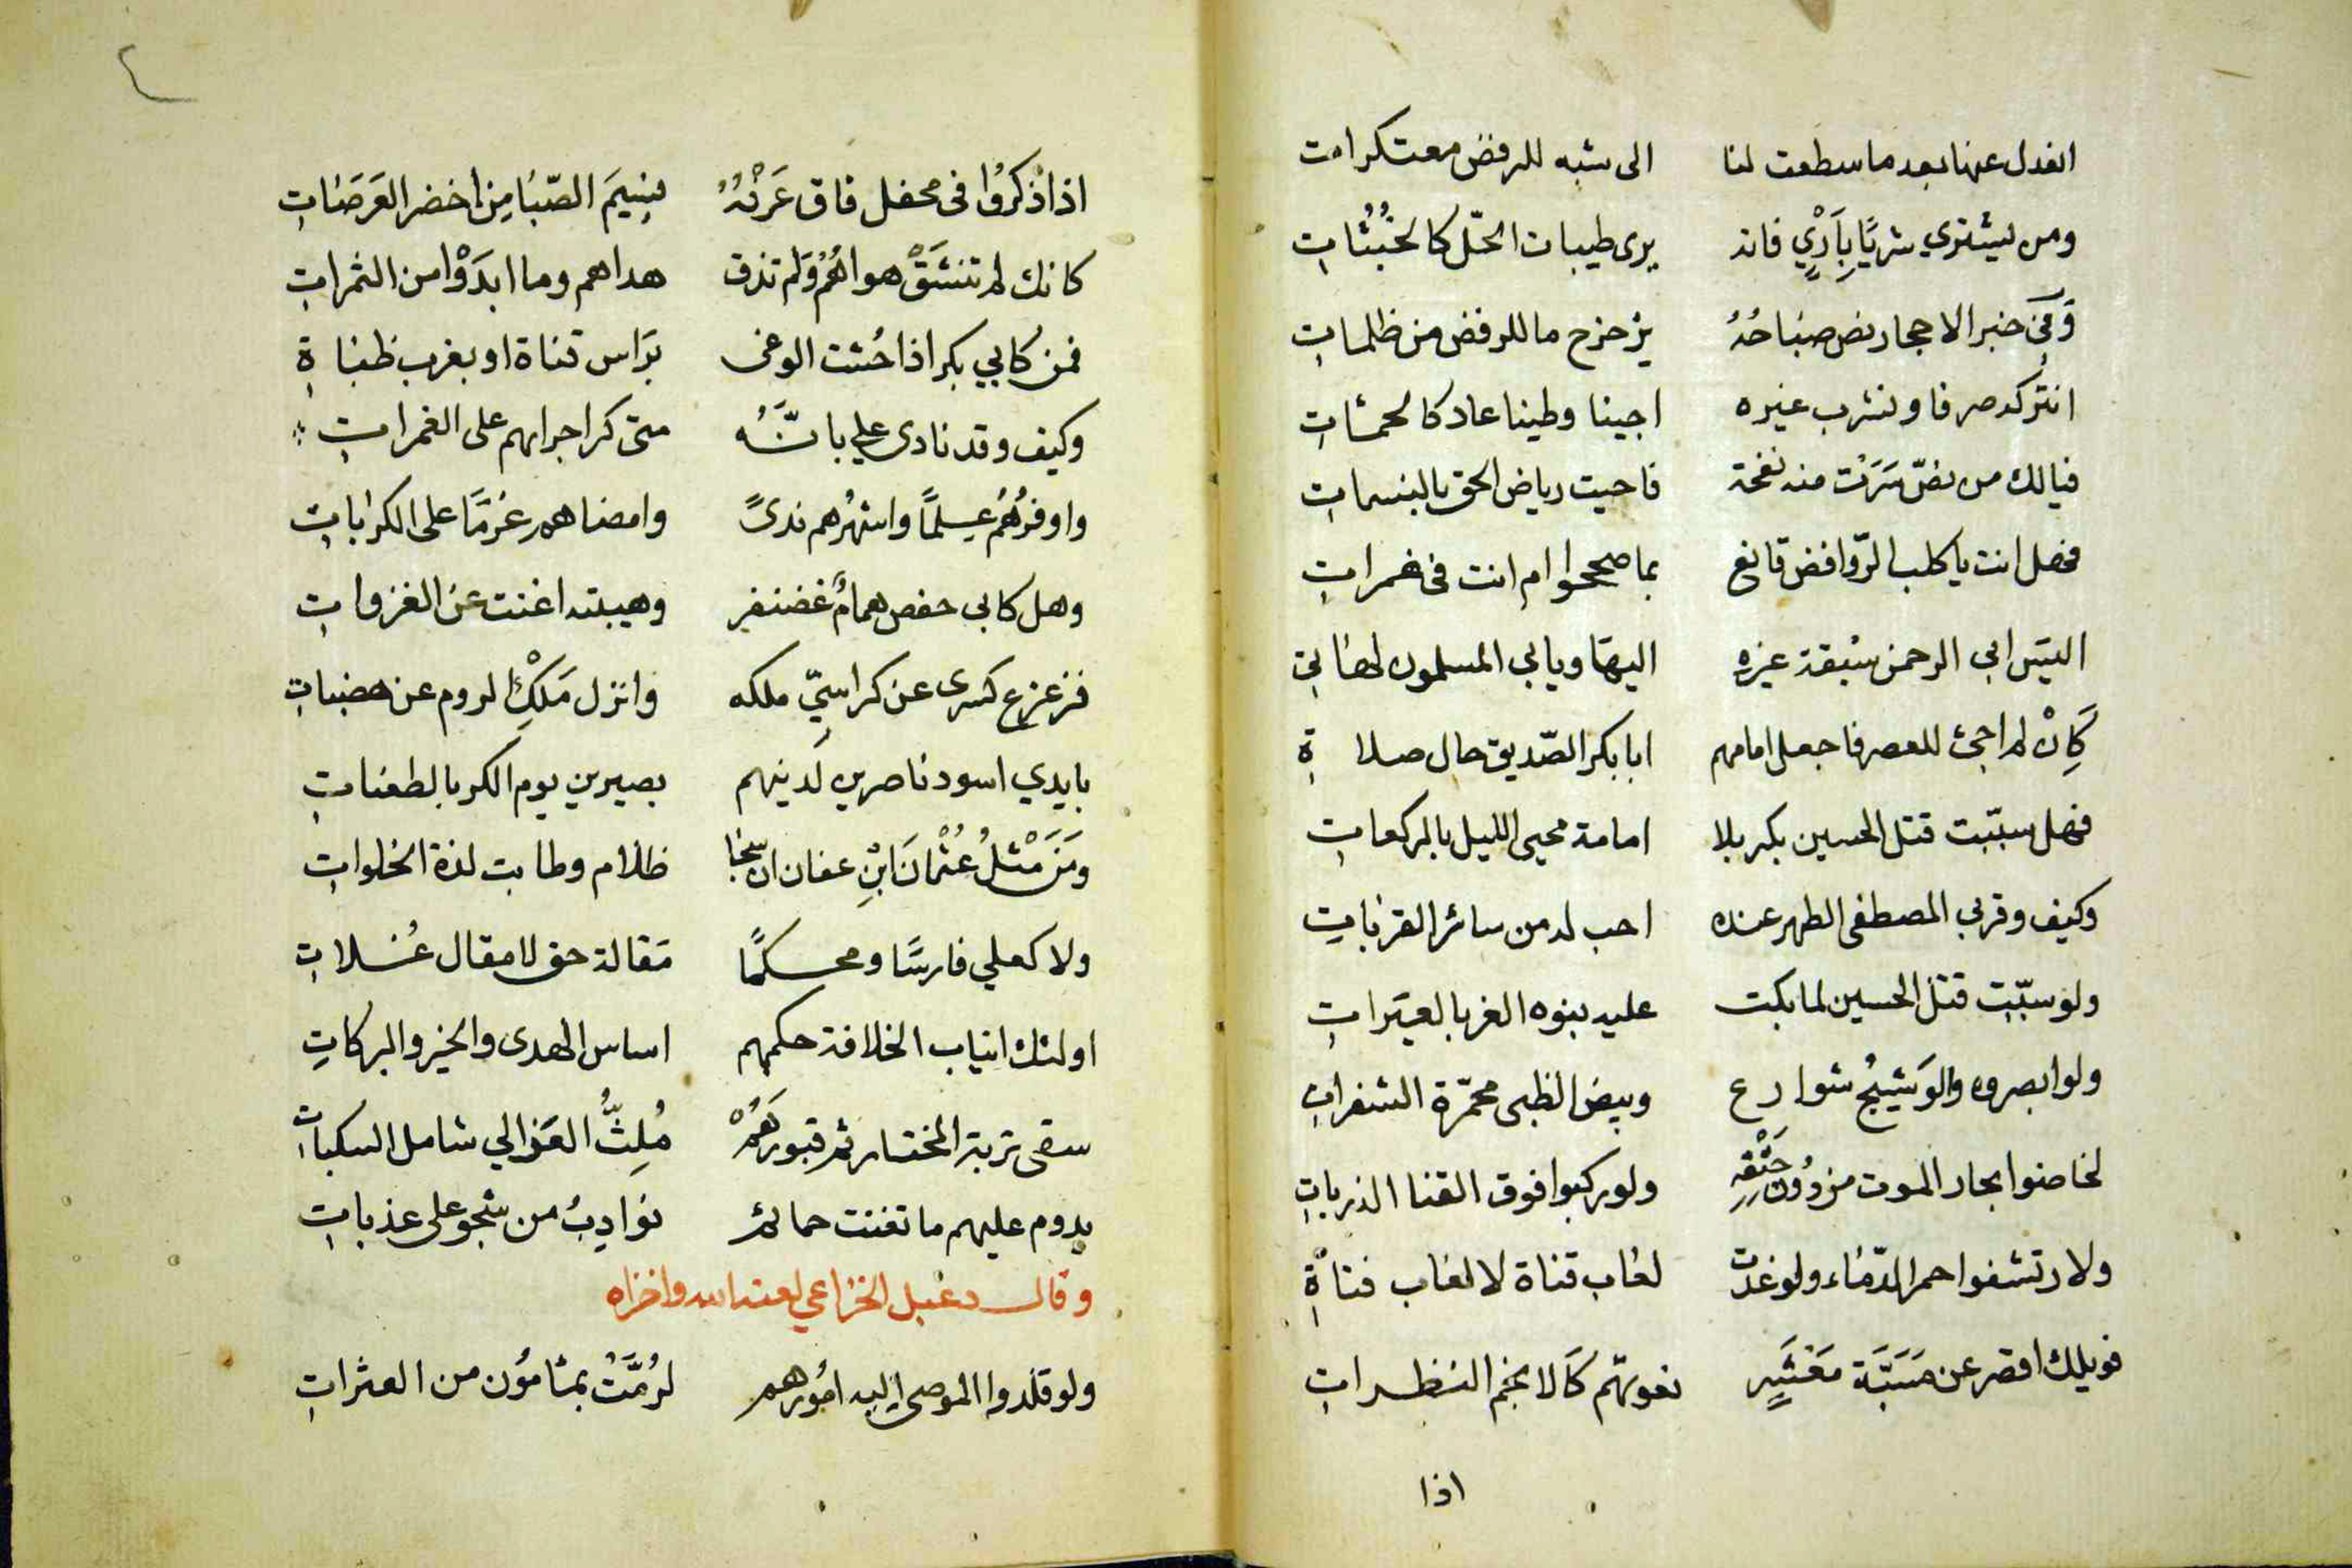 انعدل عنها بعد ما سطعت لنا الى شبه للرفض معتكرات
ومن يشتري شريًا بِأَرْيٍ فانه يرى طيبات الحّل كالخُبُثات
وَفي خبر الاحجار نص صباحُهُ يزحزح ما للرفض من ظلمات
انتركه صرفا ونشرب غيره اجينا وطينا عاد كالحمئات
فيالك من نصّ سَرَتْ منه نفحة فاحيت رياض الحق بالنسمات
فهل انت يا كلب الرّوافض قانع بما صححوا ام انت في غمرات
اليسَ ابى الرحمن سبقة غيره اليها ويابى المسلمون لهاتي
كَاِنْ لم اجئ للعصر فاجعل امامهم ابا بكر الصّديق حال صلاة
فهل سبّبت قتل الحسين بكربلا امامة محيي الليل بالركعات
وكيف وقربى المصطفى الطهر عنده احب له من سائر القربات
ولو سبّبت قتل الحسين لما بكت عليه بنوه الغر بالعبَرات
ولو ابصروه والوَشيجُ شوارع وبيض الظبى محمّرة الشفرات
لخاضوا بحار الموت من دُونِ حَتْفِهِ ولو ركبوا فوق القنا الذربات
ولارتشفوا حمر الدّماء ولو غدت لعاب قناة لا لعاب فتاة
فويلك اقصر عن مَسَبَّة مَعْشَرٍ نعوتهم كالانجم النضرات
اذا
اذا ذكرُوا في محفل فاق عَرْفُهُ نسيمَ الصّبا مِن اخضر العَرَصَات
كانك لم تنشَقْ هواهُمُ وَلم تذق هداهم وما ابدَوْا من الثمرات
فمن كابي بكر اذا حُثت الوغى برَاس قناة او بغرب ظباة
وكيف وقد نادى علي بانَّهُ متى كر اجراهم على الغمرات
واوفرُهُم عِلمًا واشهرُهم ندىً وامضاهم عزمًا على الكربات
وهل كابى حفص همامٌ غضنفر وهيبته اغنت عن الغزوات
فزعزع كسرى عن كراسيّ ملكه وانزل مَلكْ الروم عن هضبات
بايدي اسود ناصرين لدينهم بصيرين يوم الكر بالطعنات
ومَنَ مْثلُ عُثْمانَ ابْنِ عفان ان سجا ظلام وطابت لذة الخلوات
ولا كعلي فارسًا ومحكمًا مَقالة حق لا مقال غُلات
اولئك ارباب الخلافة حكمهم اساس الهدى والخير والبركاتِ
سقى تربة المختار ثم قبورَهُمْ مُلِثُّ العَزالي شامل السكبات
يدوم عليهم ما تغنت حمائم نوادِبُ من شجو على عذبات
وقال دعبل الخزاعي لعنه الله واخزاه
ولو قلدوا الموصى اليه امُورهم لزُمَّتْ بمامُون من العثرات